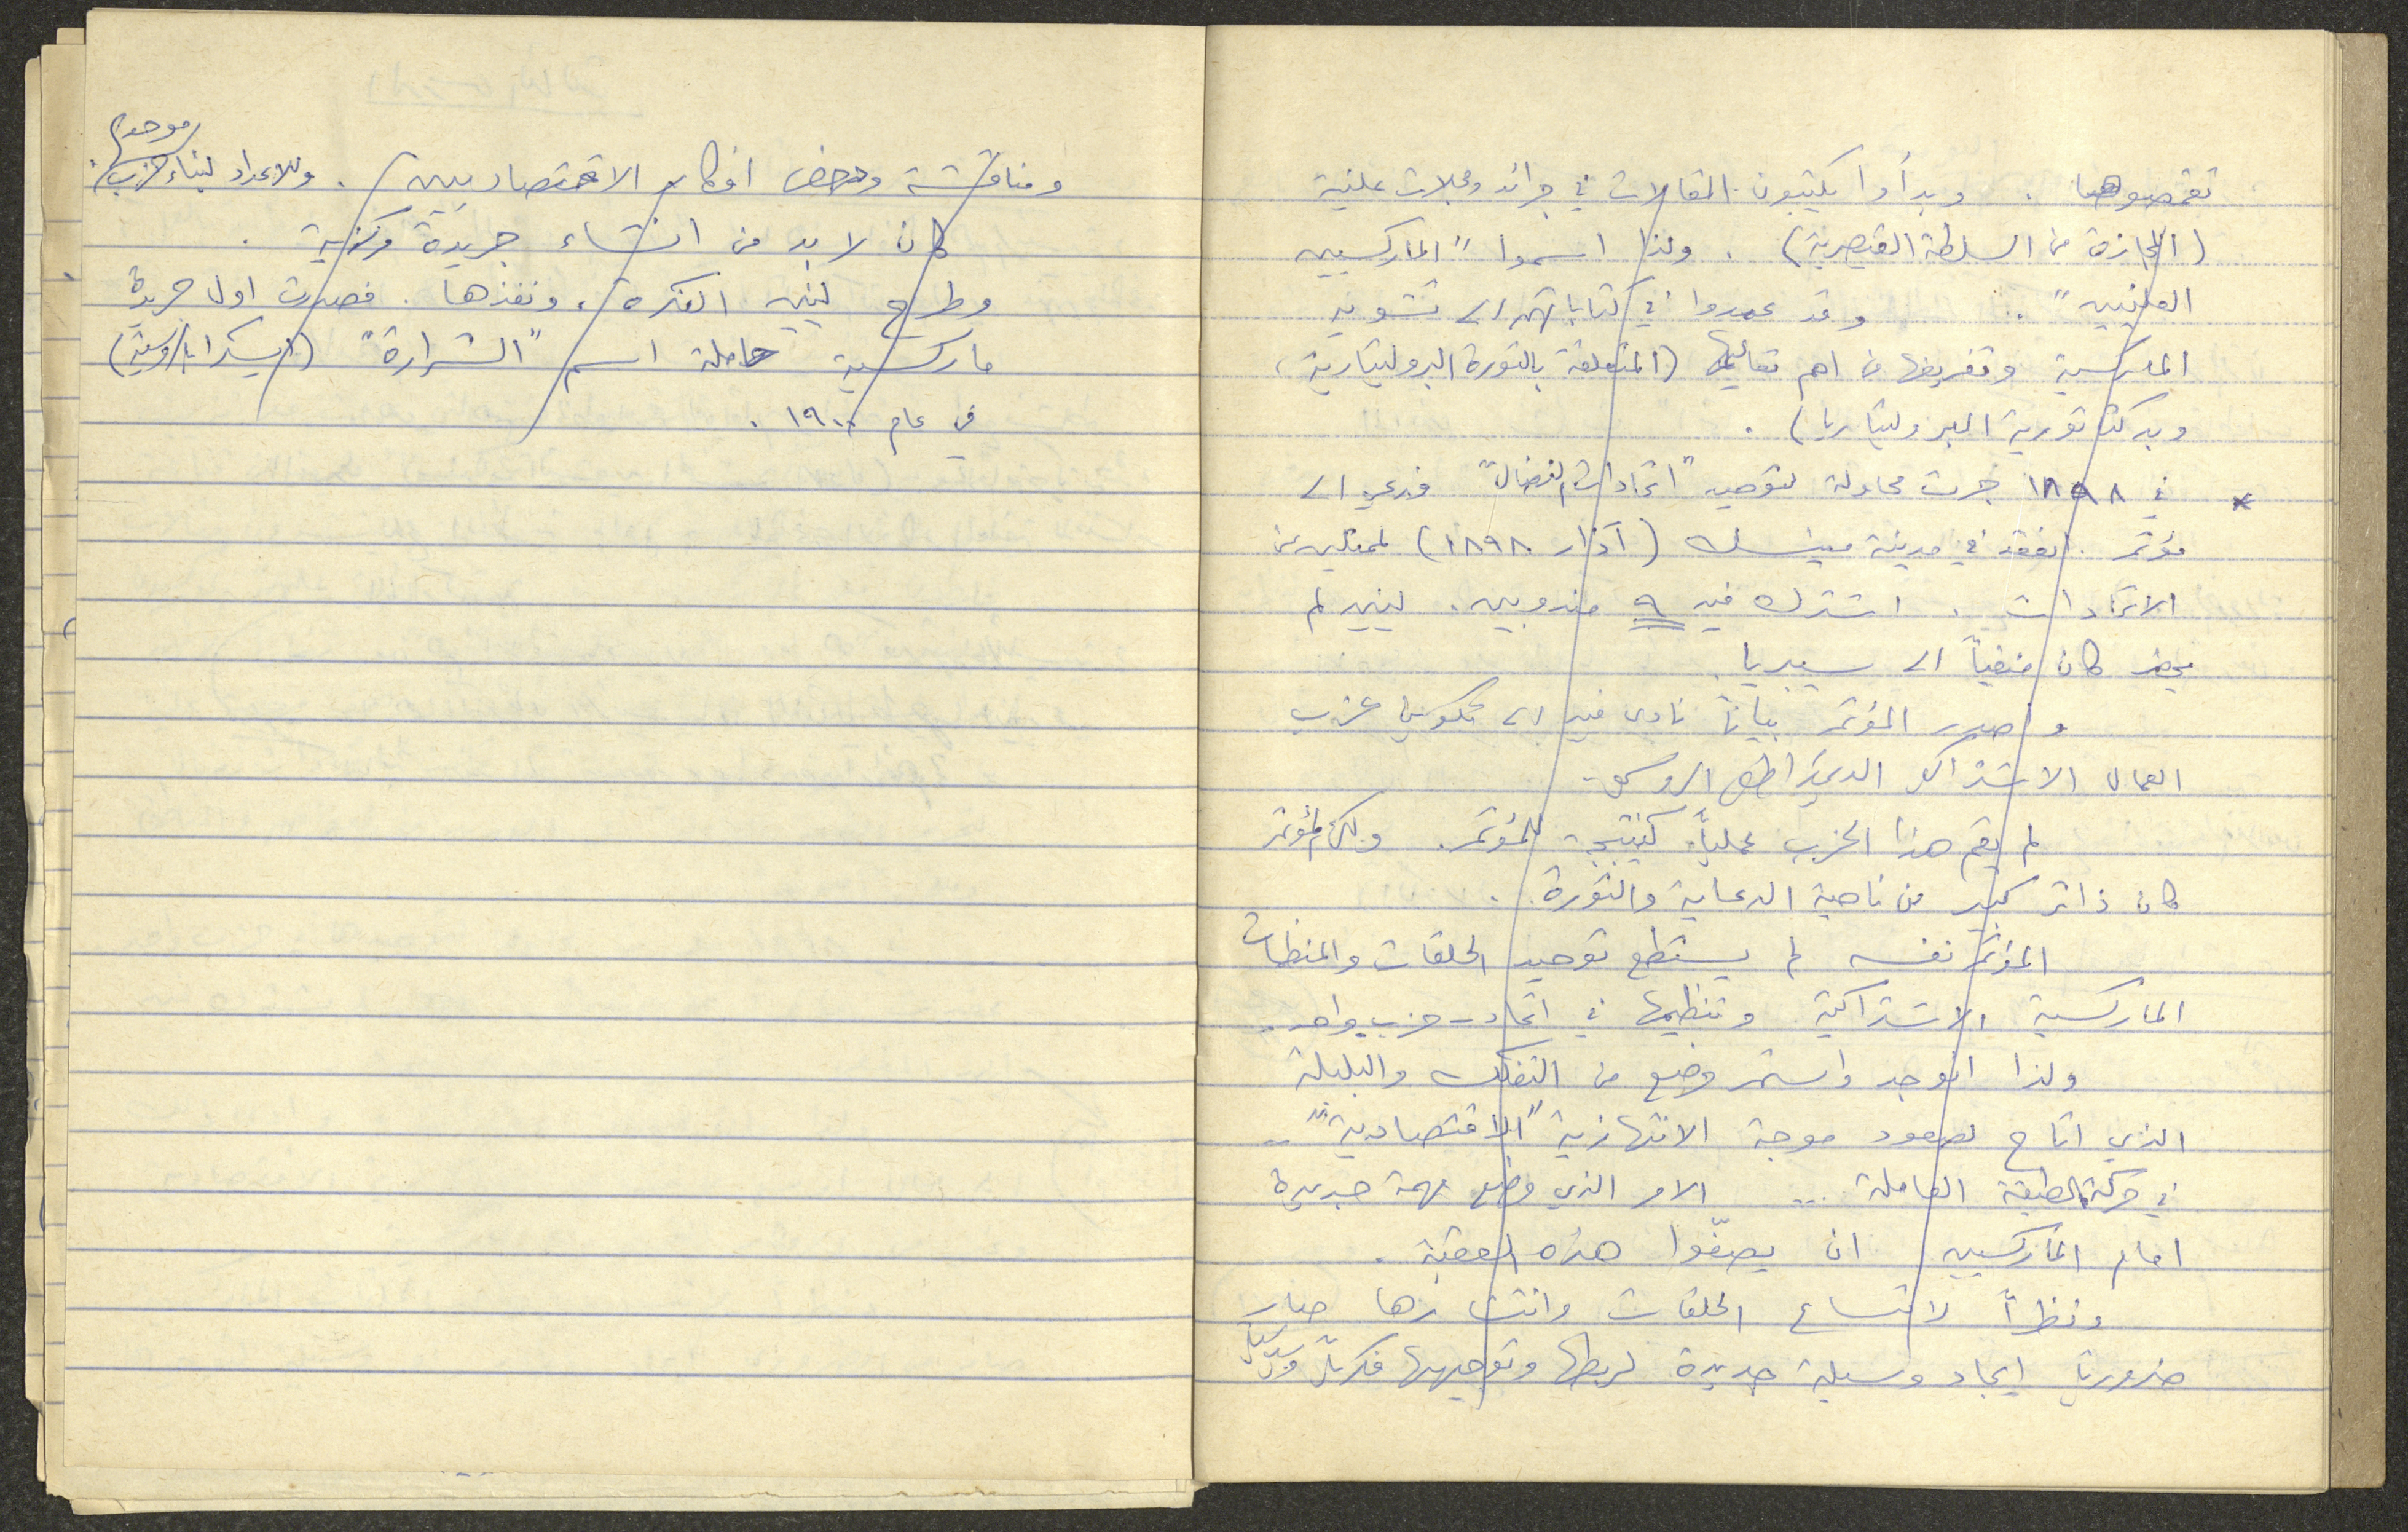 تقمصوها . وبدأوا يكتبون المقالات في جرائد ومجلات علنية
(المجازة من السلطة القيصرية) . ولذا اسموا "الماركسيين
العلنيين" . وقد عمدوا في كتاباتهم الى تشويه
الماركسية وتفريغها من اهم تعاليمها (المتعلقة بالثورة البروليتارية،
وبدكتاتورية البروليتاريا) .
* في ١٨٩٨ جرت محاولة لتوحيد "اتحادات النضال" فدعي الى
مؤتمر . انعقد في مدينة مينسك (آذار ١٨٩٨) لممثلين عن
الاتحادات . اشترك فيه ٩ مندوبين . لينين لم
يحضر كان منفياً الى سيبريا .
واصدر المؤتمر بياناً نادى فيه الى تكوين حزب
العمال الاشتراكي الديمقراطي الروسي .
لم يقم هذا الحزب عملياً كنتيجة للمؤتمر . ولكن المؤتمر
كان ذا اثر كبير من ناحية الدعاية والثورة .
المؤتمر نفسه لم يستطع توحيد الحلقات والمنظمات
الماركسية الاشتراكية وتنظيمها في اتحاد - حزب واحد .
ولذا انوجد واستمر وضع من التفكك والبلبلة
الذي اتاح لصعود موجة الانتهازية "الاقتصادية" ..
في حركة الطبقة العاملة ... الامر الذي وضع مهمة جديدة
امام الماركسيين ان يصفّوا هذه العقبة .
ونظراً لاتساع الحلقات وانتشارها صار
ضرورياً ايجاد وسيلة جديدة لربطها وتوجيهها فكرياً
ومناقشة ودحض افكار الاقتصاديين . وللاعداد لبناء حزب موحد .
كان لا بد من انشاء جريدة مركزية .
وطرح لينين الفكرة ، ونفذها . فصدرت اول جريدة
ماركسية حاملة اسم "الشرارة" (ايسكرا بالروسية)
في عام ١٩٠٠ .